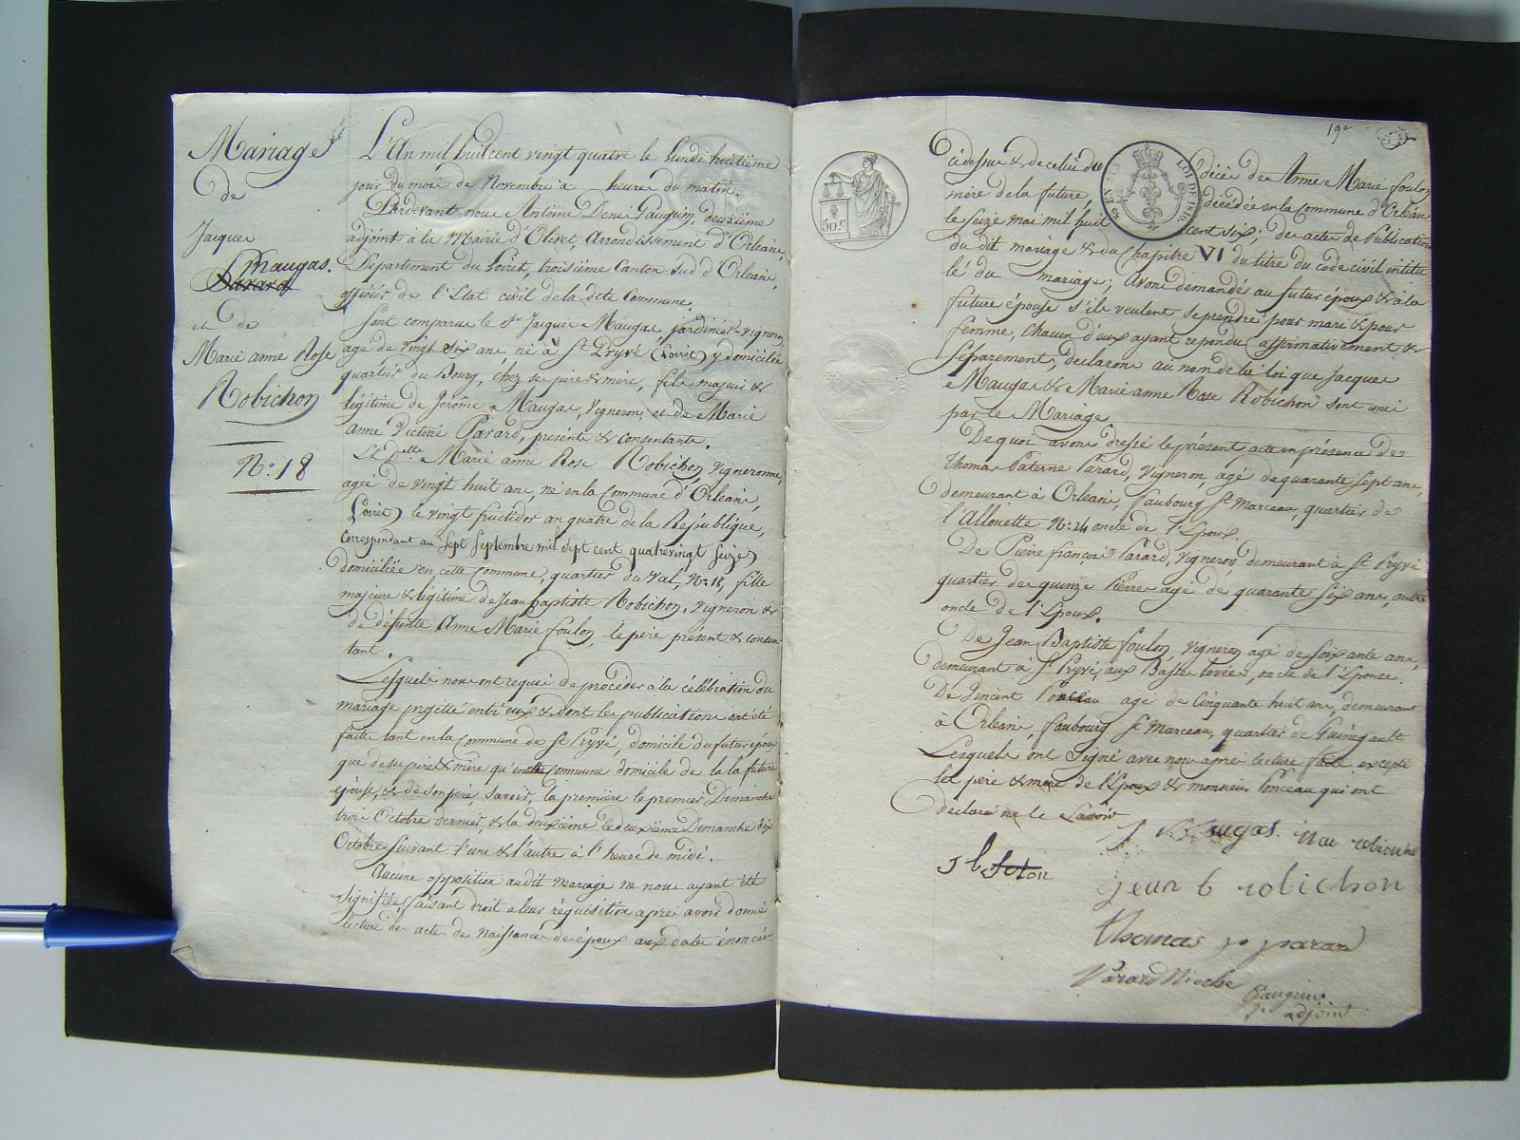 Mariage
de
Jacques
Maugas.
Parard
et de
Marie anne Rose
Robichon
N.º 18
L'An mil huit cent vingt quatre le Lundi huitième
jour du mois de Novembre à heures du matin.
Pardevant nous Antoine Denis Gauguin, deuxième
adjoint à la Mairie d'Olivet, Arrondissement d'Orléans,
Département du Loiret, troisième Canton sud d'Orléans,
officier de l'Etat civil de la dte Commune,
Sont comparus le Sr Jacques Maugas, jardinier vigneron,
agé de vingt six ans né à St Pryvé (Loiret) y domicilié
quartier du Bourg, chez ses pere & mère, fils majeur &
légitime de Jerôme Maugas, Vigneron, et de Marie
anne Victoire Parard, présents & consentants.
Et Delle Marie anne Rose Robichon, vigneronne,
agée de vingt huit ans, né en la Commune d'Orléans,
Loiret, le vingt fructidor an quatre de la République,
Correspondant au Sept Septembre mil sept cent quatrevingt seize,
domiciliée en cette Commune, quartier du Val, No 18, fille
majeure & légitime de Jean baptiste Robichon, vigneron &
de défunte Anne Marie foulon, le père présent & consen
tant.
Lesquels nous ont requis de procéder a la célébration du
mariage projetté entr'eux & dont les publications ont été
faites tant en la Commune de St Pryvé, domicile du futur époux
que de ses pere & mère qu'en cette Commune domicile de la la future
épouse, & de son père, Savoir, la première le premier Dimanche
trois Octobre dernier, & la deuxième le deuxième Dimanche dix
Octobre suivant l'une & l'autre à l'heure de midi.
Aucune opposition audit mariage ne nous ayant été
Signifiée, faisant droit a leur réquisition après avoir donné
lecture des actes de naissances des époux aux dates énoncées
19e
ci dessus & de celui du décès de Anne Marie foulon
mère de la future, décédée en la Commune d'Orléans
le Seize mai mil huit cent six; des actes de Publication
du dit mariage & du Chapitre VI du titre du code civil intitu
lé du mariage; avons demandés au futur époux & à la
future épouse s'ils veulent se prendre pour mari & pour
femme, Chacun d'eux ayant répondu affirmativement &
Séparement, declarons au nom de la loi que Jacques
Maugas & Marie anne Rose Robichon sont unis
par le Mariage.
De quoi avons dressé le présent acte en présence de
Thomas Paterne Parard, vigneron agé de quarante sept ans,
demeurant à Orléans, faubourg St Marceau, quartier de
l'Allouette No 24 oncle de l'Epoux.
De Pierre françois Parard, vigneron demeurant à St Pryvé
quartier de quinze Pierres agé de quarante six ans, autre
oncle de l'Epoux.
De Jean Baptiste foulon, vigneron agé de soixante ans,
demeurant à St Pryvé, aux Basses terres, oncle de l'Epouse.
De Vincent Ponceau agé de Cinquante huit ans, demeurant
à Orléans, faubourg St Marceau, quartier de Guinegault
Lesquels ont Signé avec nous après lecture faite excepté
les pere & mere de l'Epoux & monsieur Ponceau qui ont
déclaré ne le Savoir
J Maugas.
J b folon
jean b robichon
thomas p parard
Gauguin
adjoint
LOI DE 1816